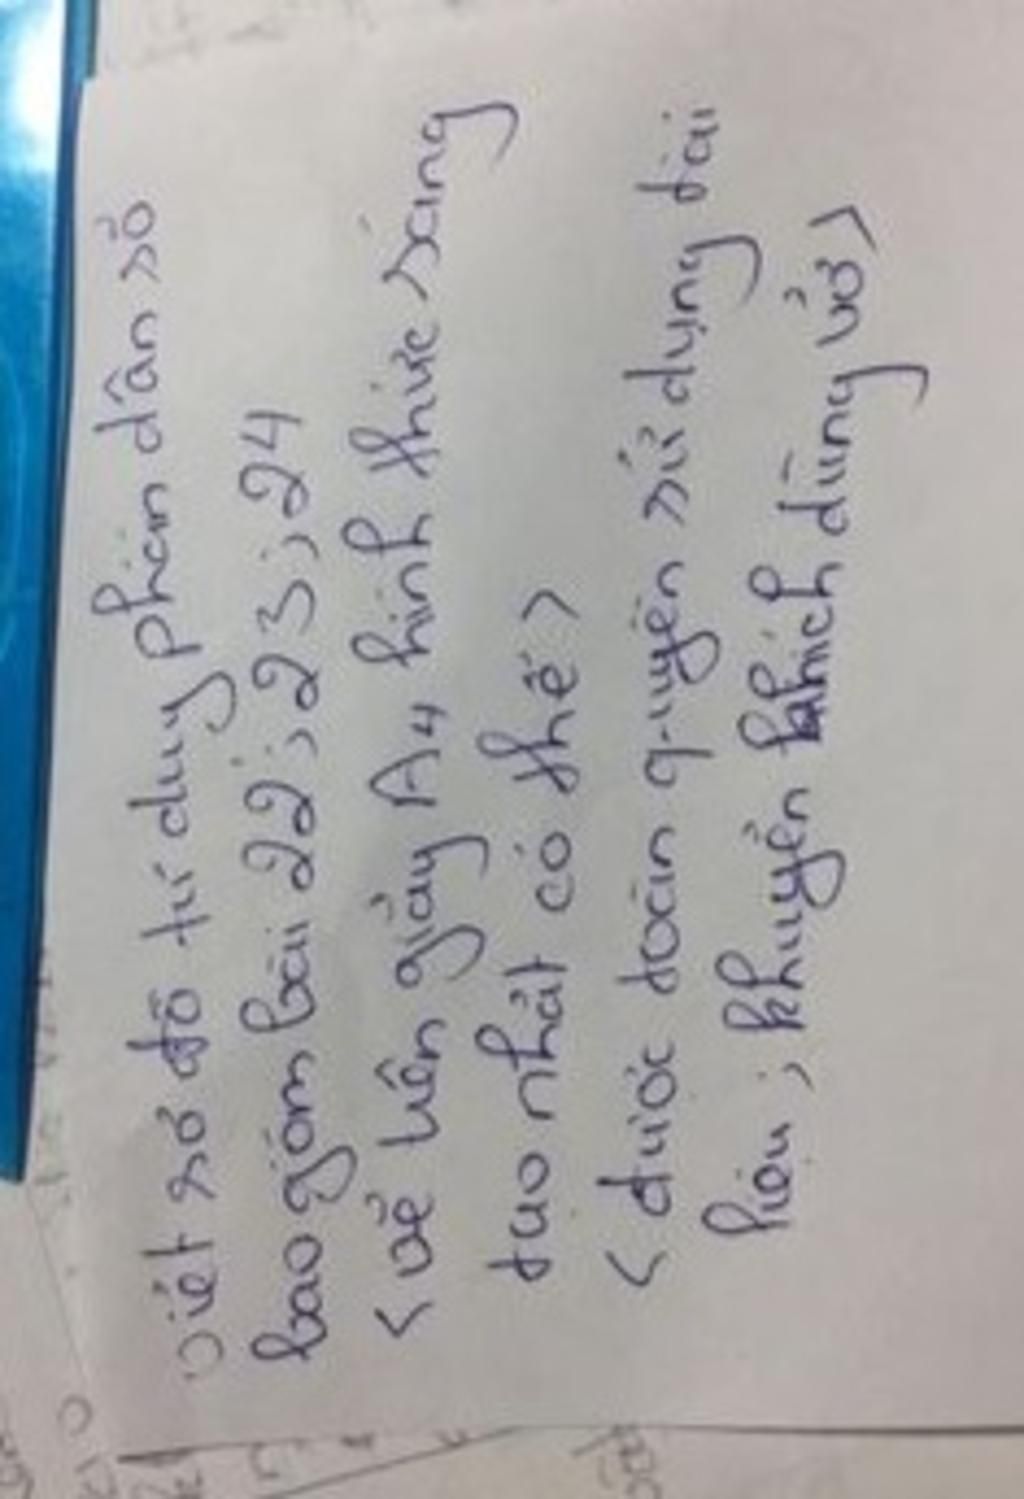 viết sơ đồ tư duy phần dân số
bao gồm bài 22; 23; 24
< vẽ lên giấy A4 hình thức sáng
tạo nhất có thể >
< được toàn quyền sử dụng tài
liệu; khuyến khích dùng vở >